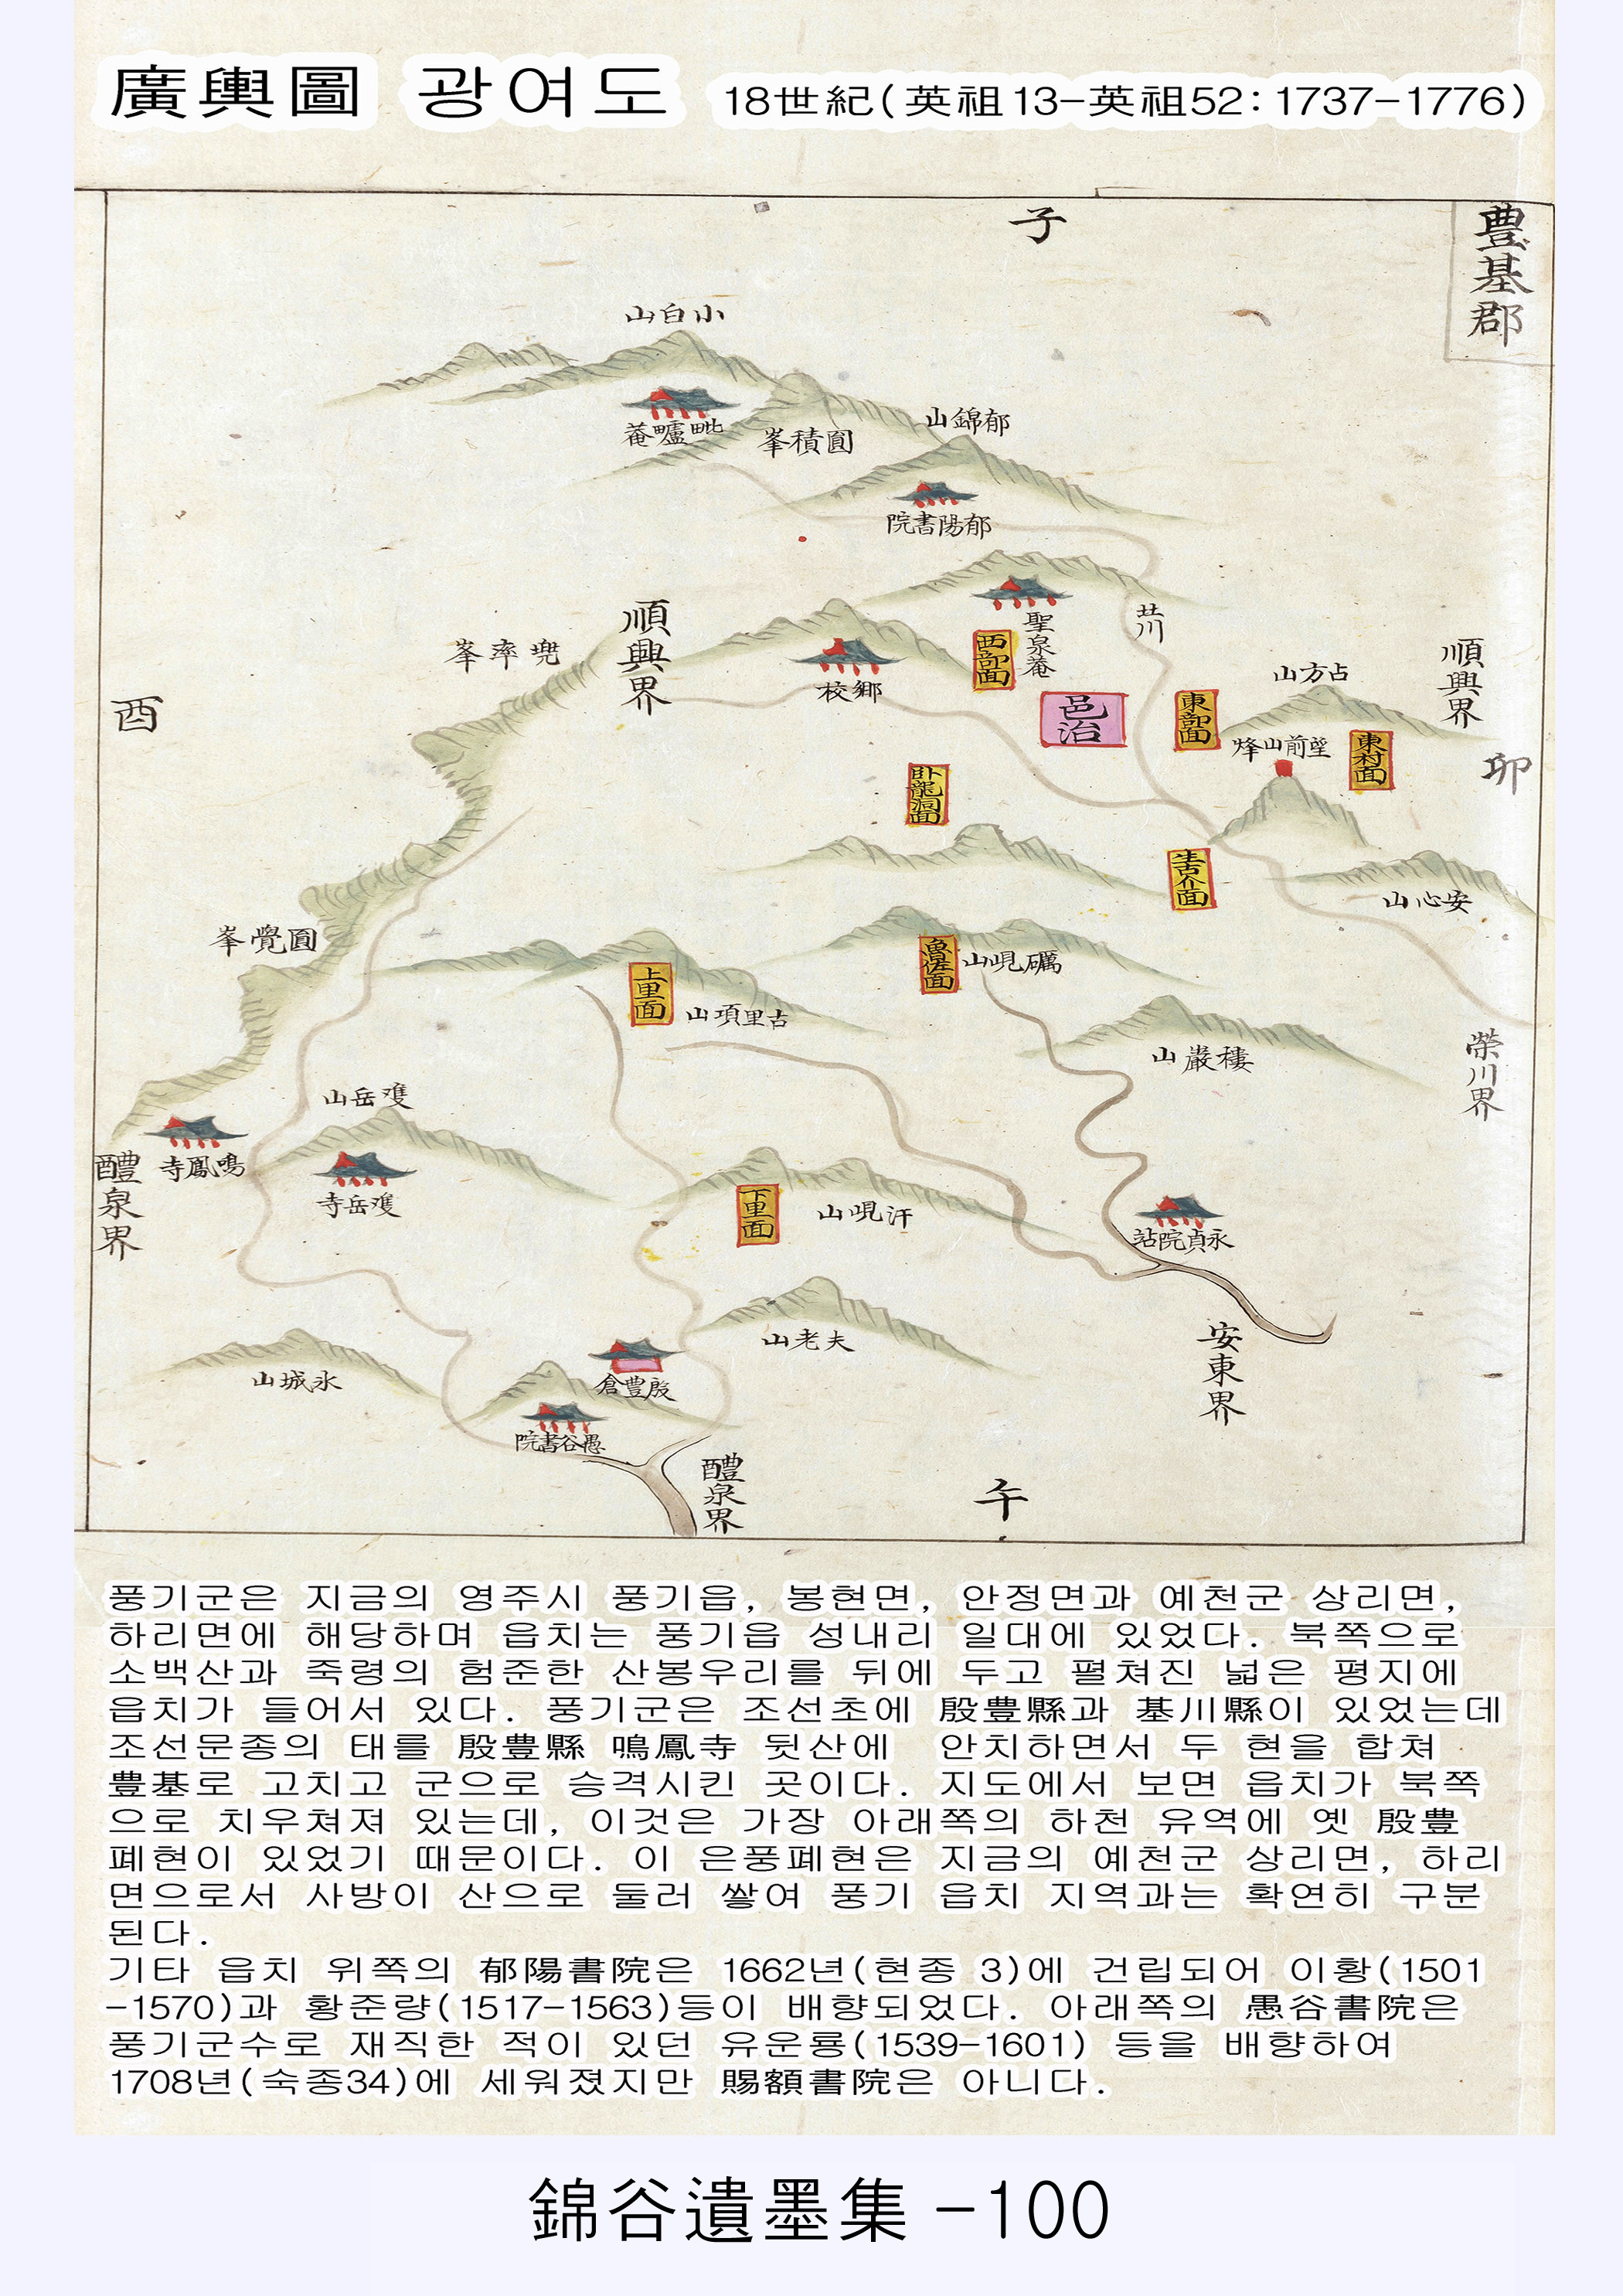 廣輿圖 광여도 18世紀(英祖13-英祖52:1737-1776)
豊基郡
子
小白山
郁錦山
毗盧菴
圓積峯
郁陽書院
聖泉菴
西部面
順興界
兜率峯
鄕校
邑治
東部面
占方山
順興界
望前山烽
東村面
酉
卯
臥龍洞面
生古介面
安心山
圓覺峯
魯佐面
礪峴山
上里面
古里項山
樓巖山
榮川界
鳴鳳寺
醴泉界
下里面
汗峴山
永貞院站
夫老山
安東界
殷豊倉
愚谷書院
醴泉界
午
풍기군은 지금의 영주시 풍기읍, 봉현면, 안정면과 예천군 상리면,
하리면에 해당하며 읍치는 풍기읍 성내리 일대에 있었다. 북쪽으로
소백산과 죽령의 험준한 산봉우리를 뒤에 두고 펼쳐진 넓은 평지에
읍치가 들어서 있다. 풍기군은 조선초에 殷豊縣과 基川縣이 있었는데
조선문종의 태를 殷豊縣 鳴鳳寺 뒷산에 안치하면서 두 현을 합쳐
豊基로 고치고 군으로 승격시킨 곳이다. 지도에서 보면 읍치가 북쪽
으로 치우쳐져 있는데, 이것은 가장 아래쪽의 하천 유역에 옛 殷豊
폐현이 있었기 때문이다. 이 은풍폐현은 지금의 예천군 상리면, 하리
면으로서 사방이 산으로 둘러 쌓여 풍기 읍치 지역과는 확연히 구분
된다.
기타 읍치 위쪽의 郁陽書院은 1662년(현종 3)에 건립되어 이황(1501
-1570)과 황준량(1517-1563)등이 배향되었다. 아래쪽의 愚谷書院은
풍기군수로 재직한 적이 있던 유운룡(1539-1601) 등을 배향하여
1708년(숙종34)에 세워졌지만 賜額書院은 아니다.
錦谷遺墨集 -100